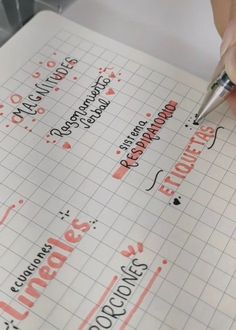 MAGNITUDES
Razonamiento
verbal
sistema
RESPIRATORIO
ETIQUETAS
ecuaciones
Lineales
PORCIONES